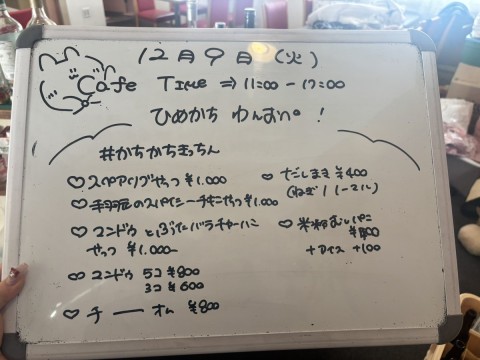 12月9日(火)
Cafe TIME ⇒ 11:00 - 17:00
ひめかち わんおぺ。!
#かちかちきっちん
♡スペアリブせっつ ¥1.000
♡手羽辰のスパイシーチキンせっつ ¥1.000
♡スンドゥとぶたバラチャーハン
せっつ ¥1.000-
♡スンドゥ 5コ ¥800
3コ ¥600
♡チーーオム ¥800
♡だしまき ¥400
(ねぎ / ノーマル)
♡米粉むしパン
¥800
+アイス +100